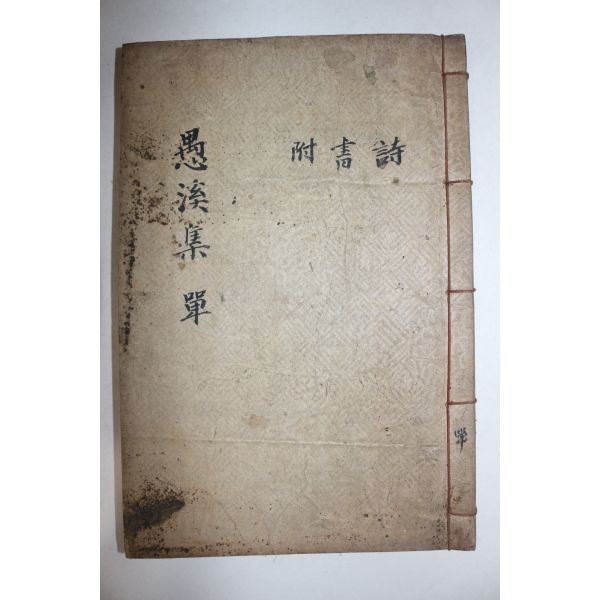 愚溪集 單
詩書附
單